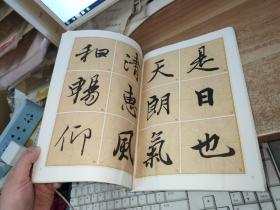 是日也
天朗氣
清惠風
和暢仰